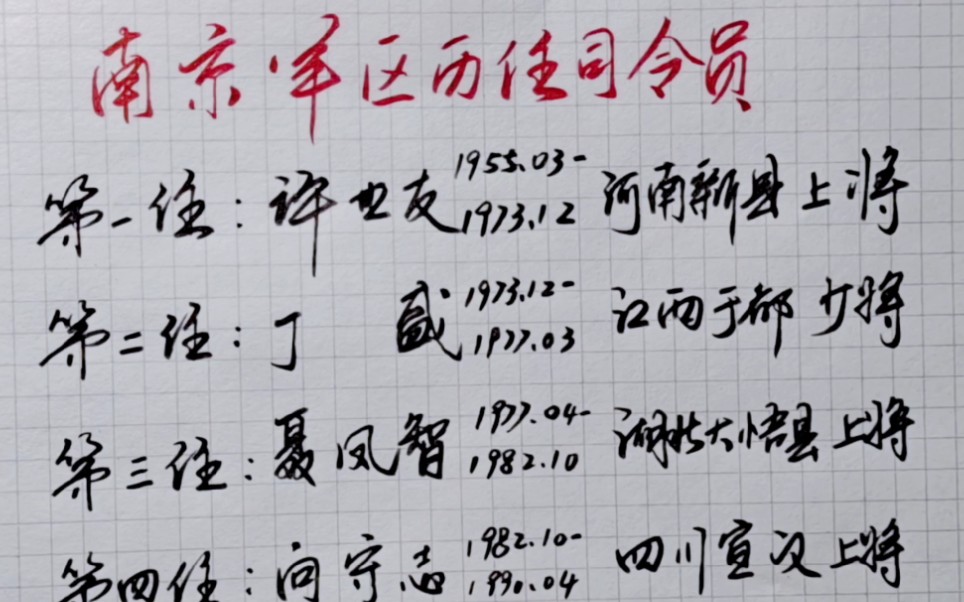 南京军区历任司令员
第一任：许世友 1955.03-1973.12 河南新县上将
第二任：丁 盛 1973.12-1977.03 江西于都 少将
第三任：聂凤智 1977.04-1982.10 湖北大悟县上将
第四任：向守志 1982.10-1990.04 四川宣汉上将